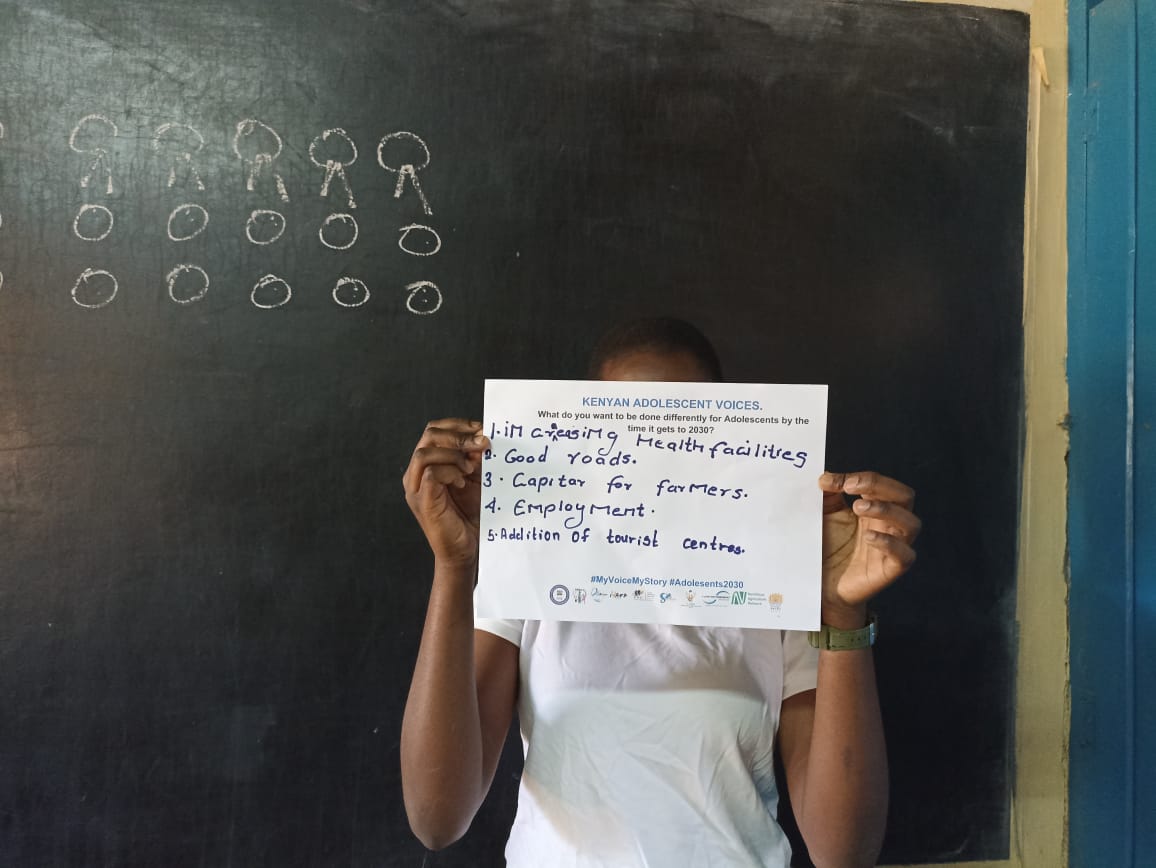 KENYAN ADOLESCENT VOICES.
What do you want to be done differently for Adolescents by the
time it gets to 2030?
1. increasing Health facilities
2. Good roads.
3. Capitar for farmers.
4. Employment.
5. Addition of tourist centres.
#MyVoiceMyStory #Adolesents2030